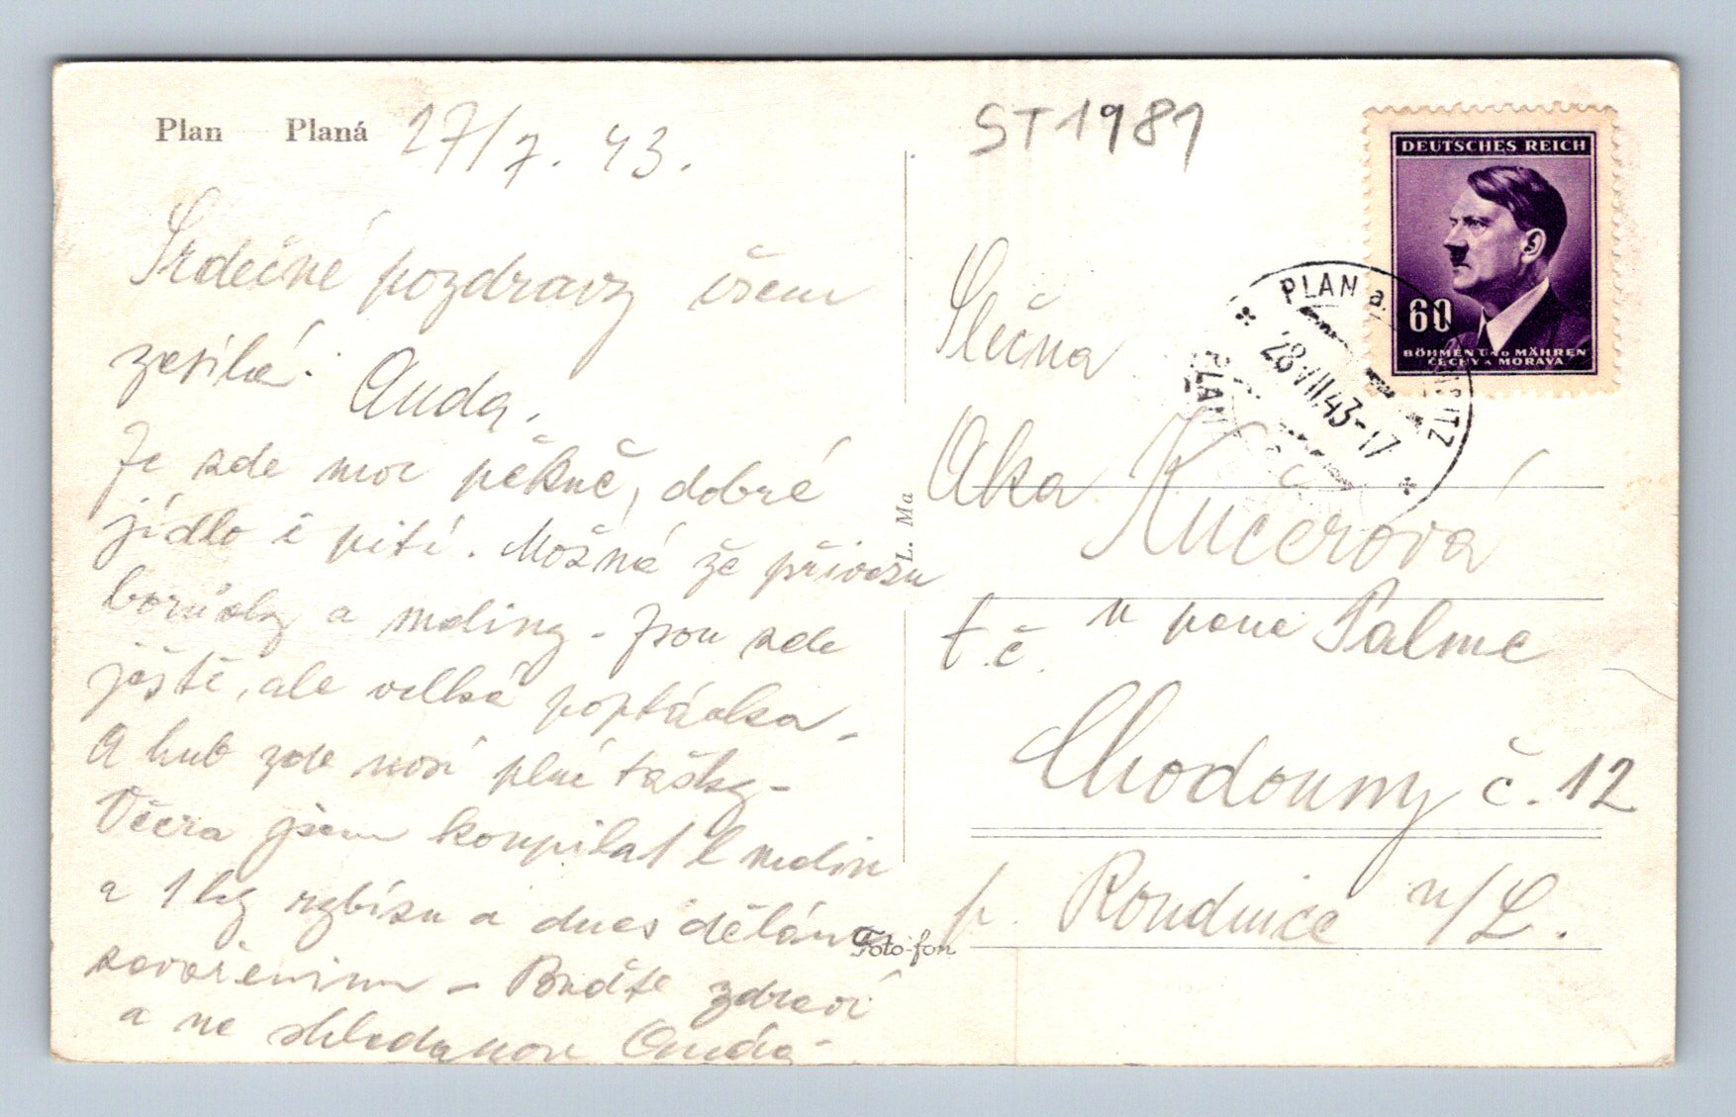 Plan Planá 27/7. 43.
Srdečné pozdravy všem
zesílá Anda.
Je zde moc pěkně, dobré
jídlo i pití. Možná že přivezu
borůvky a maliny - Jsou zde
ještě, ale velká poptávka -
A hub zde nosí plné tašky -
Včera jsem koupila 1 l malin
a 1 kg rybízu a dnes dělám
zavařeninu - Buďte zdrávi
a na shledanou Anda
L. Ma
Foto-fon
ST1981
DEUTSCHES REICH
60
BÖHMEN UND MÄHREN
ČECHY A MORAVA
PLAN a.
28.VII.43-17
PLAN
Slečna
Aka Kučerová
t.č. u paní Palme
Chodouny č. 12
p. Roudnice n/L.